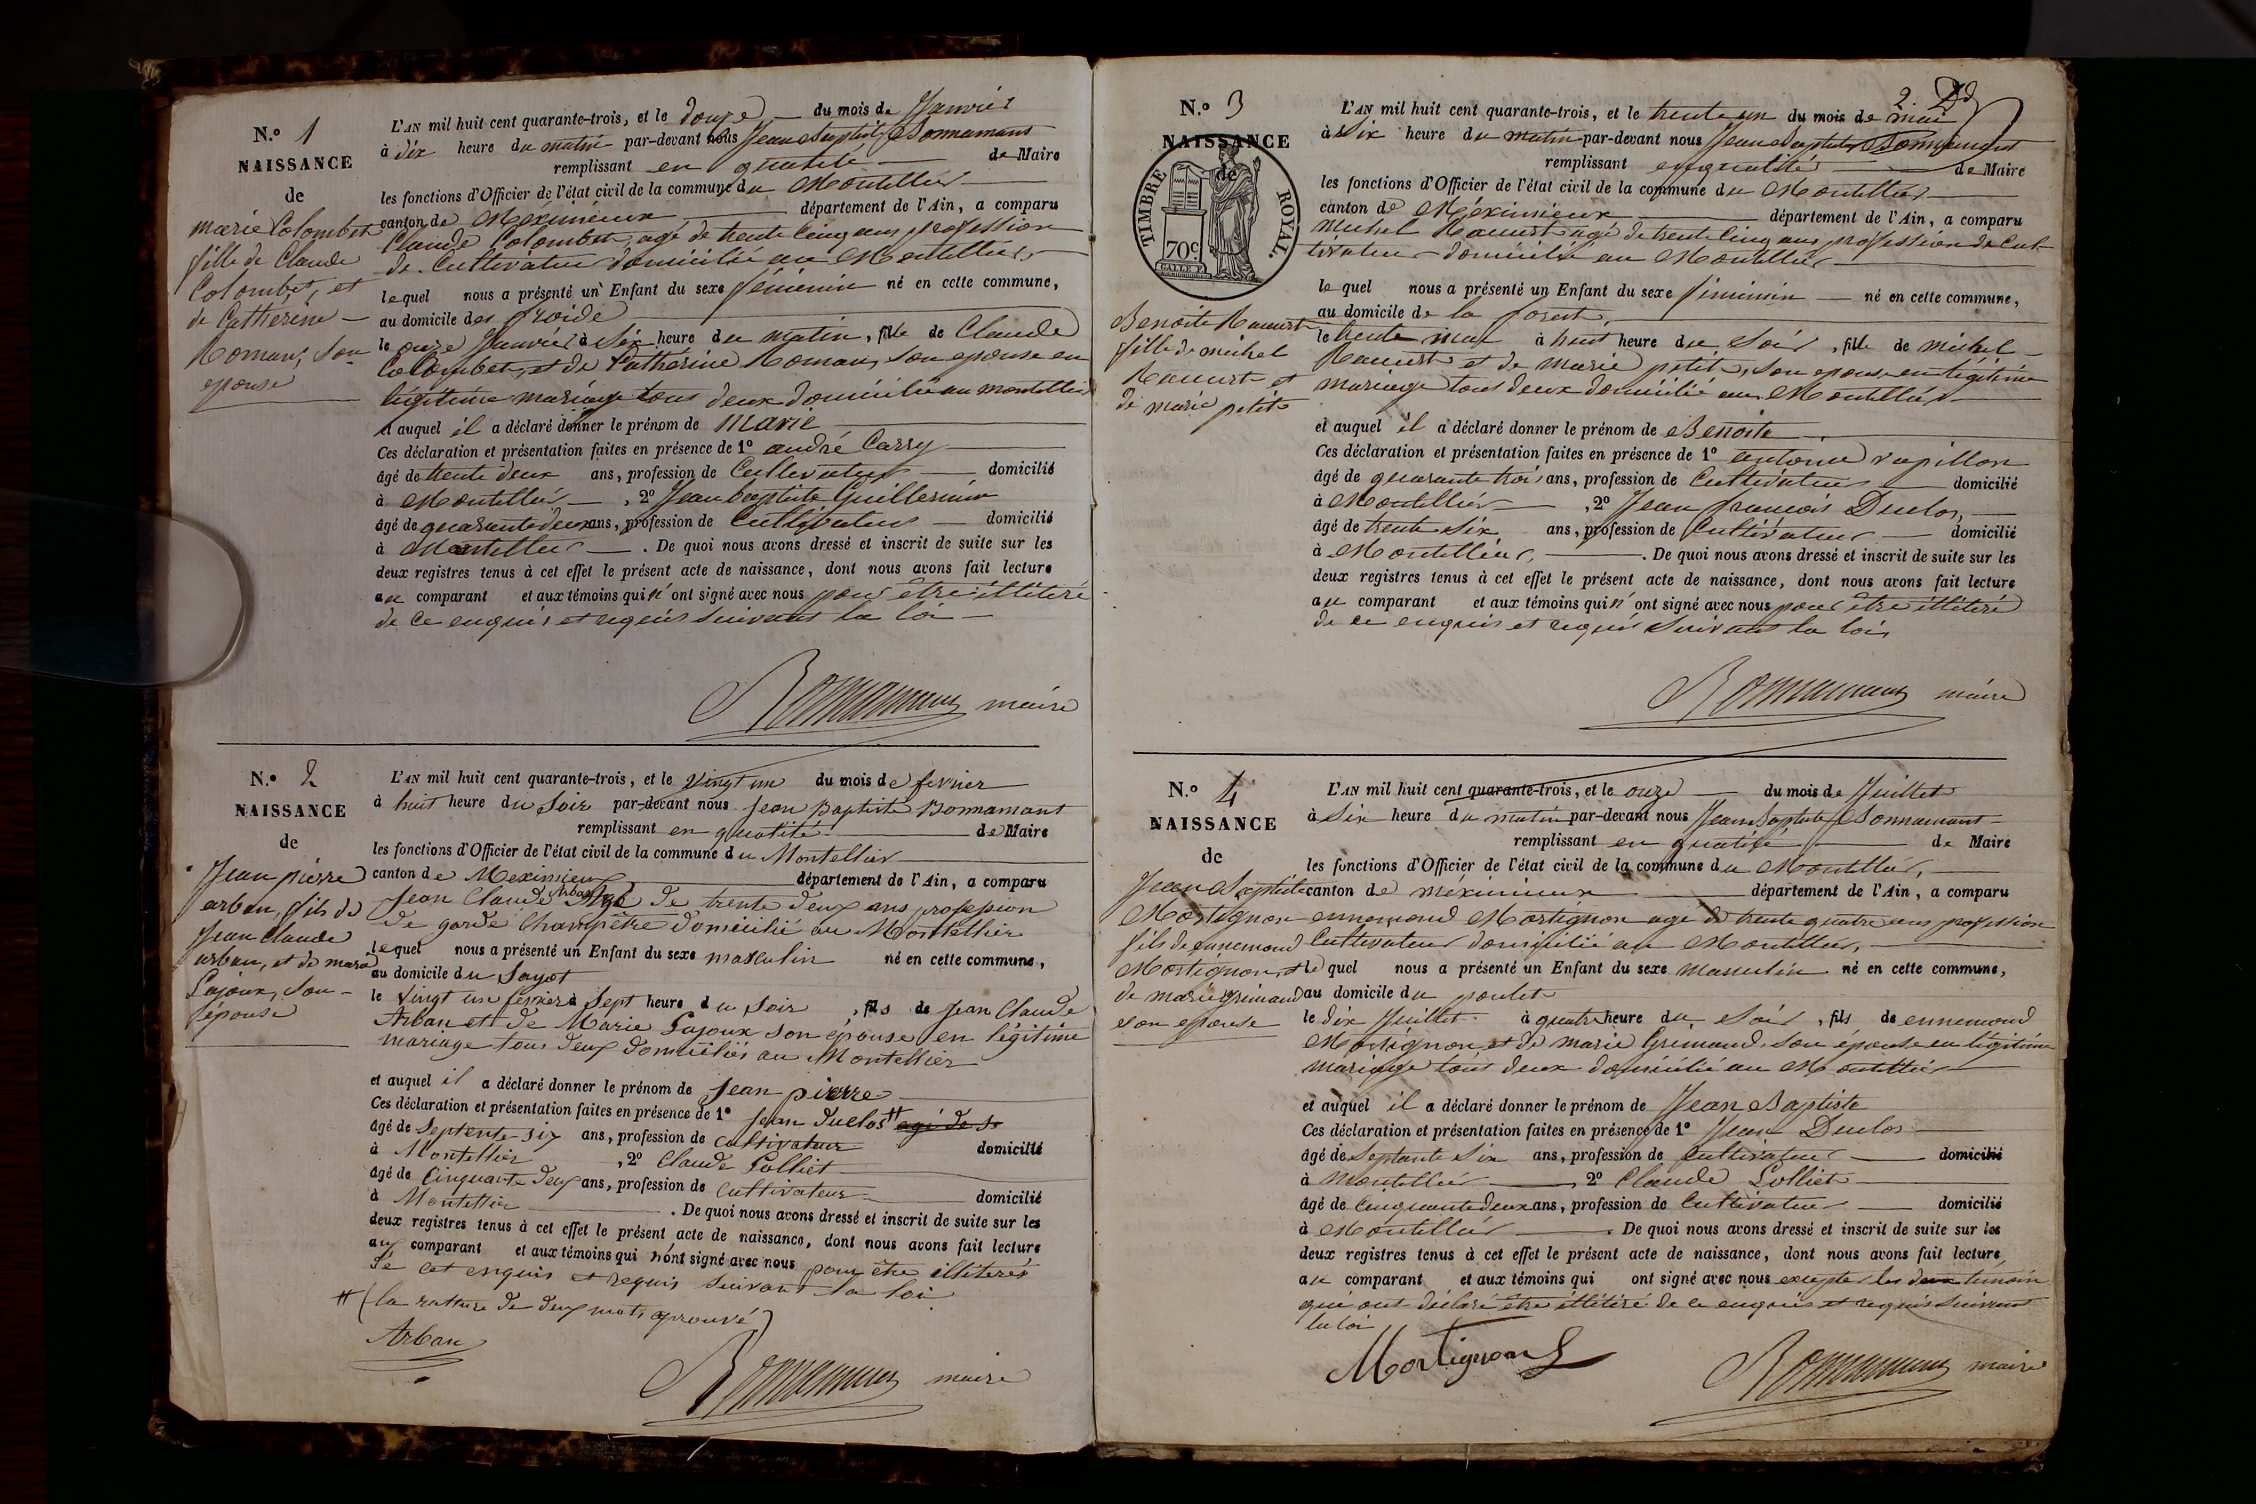 N.º 1
NAISSANCE
de
marie Colombet
fille de Claude
Colombet, et
de Catherine
Roman, son
epouse
L'AN mil huit cent quarante-trois, et le douze du mois de Janvier
à dix heure du matin par-devant nous Jean Baptiste Bonnamant
remplissant en qualité de Maire
les fonctions d'Officier de l'état civil de la commune du Montellier
canton de Meximieux département de l'Ain, a comparu
Claude Colombet, agé de trente Cinq ans profession
de Cultivateur domicilié au Montellier
lequel nous a présenté un Enfant du sexe féminin né en cette commune,
au domicile des froide
le onze Janvier à Six heure du matin, fille de Claude
Colombet, et de Catherine Roman, son epouse en
légitime mariage tous deux domicilié au montellier
et auquel il a déclaré donner le prénom de Marie
Ces déclaration et présentation faites en présence de 1º andré Carry
âgé de trente deux ans, profession de Cultivateur domicilié
à Montellier, 2º Jean baptiste Guillermin
âgé de quarante deux ans, profession de Cultivateur domicilié
à Montellier. De quoi nous avons dressé et inscrit de suite sur les
deux registres tenus à cet effet le présent acte de naissance, dont nous avons fait lecture
au comparant et aux témoins qui n'ont signé avec nous pour être illitéré
de ce enquis et requis suivant la loi
Bonnamant maire
N.º 2
NAISSANCE
de
Jean pierre
arban, fils de
Jean Claude
arban, et de marie
Lajoux, son
épouse
L'AN mil huit cent quarante-trois, et le vingt un du mois de fevrier
à huit heure du Soir par-devant nous Jean Baptiste Bonnamant
remplissant en qualité de Maire
les fonctions d'Officier de l'état civil de la commune du Montellier
canton de Meximieux département de l'Ain, a comparu
Jean Claude Arban Agé de trente deux ans profession
de garde Champêtre domicilié au Montellier
lequel nous a présenté un Enfant du sexe masculin né en cette commune,
au domicile du Sayot
le vingt un fevrier à Sept heure du Soir, fils de Jean Claude
Arban et de Marie Lajoux son épouse en légitime
mariage tous deux domiciliés au Montellier
et auquel il a déclaré donner le prénom de Jean pierre
Ces déclaration et présentation faites en présence de 1º Jean Duclos # agé de s
âgé de Septente six ans, profession de Cultivateur domicilié
à Montellier, 2º Claude Lolliet
âgé de Cinquante deux ans, profession de Cultivateur domicilié
à Montellier. De quoi nous avons dressé et inscrit de suite sur les
deux registres tenus à cet effet le présent acte de naissance, dont nous avons fait lecture
au comparant et aux témoins qui n'ont signé avec nous pour être illiterés
de cet enquis et requis suivant la loi
# (la rature de deux mots aprouvé)
Arban
Bonnamant maire
2.
N.º 3
NAISSANCE
de
TIMBRE ROYAL.
70c
Benoite Racurt
fille de michel
Racurt et
de marie petit
L'AN mil huit cent quarante-trois, et le trente un du mois de mai
à Six heure du matin par-devant nous Jean Baptiste Bonnamant
remplissant en qualité de Maire
les fonctions d'Officier de l'état civil de la commune du Montellier
canton de Méximieux département de l'Ain, a comparu
Michel Racurt agé de trente Cinq ans profession de Cul-
tivateur domicilié au Montellier
lequel nous a présenté un Enfant du sexe féminin né en cette commune,
au domicile de la forest
le trente mai à huit heure du Soir, fille de michel
Racurt et de marie petit, son epouse en légitime
mariage tous deux domicilié au Montellier
et auquel il a déclaré donner le prénom de Benoite
Ces déclaration et présentation faites en présence de 1º antoine rapillon
âgé de quarante trois ans, profession de Cultivateur domicilié
à Montellier, 2º Jean françois Duclos,
âgé de trente Six ans, profession de Cultivateur domicilié
à Montellier. De quoi nous avons dressé et inscrit de suite sur les
deux registres tenus à cet effet le présent acte de naissance, dont nous avons fait lecture
au comparant et aux témoins qui n'ont signé avec nous pour être illitéré
de ce enquis et requis suivant la loi
Bonnamant maire
N.º 4
NAISSANCE
de
Jean Baptiste
Mortignon
fils de ennemond
Mortignon, et
de marie grimaud
son epouse
L'AN mil huit cent quarante-trois, et le onze du mois de Juillet
à Six heure du matin par-devant nous Jean Baptiste Bonnamant
remplissant en qualité de Maire
les fonctions d'Officier de l'état civil de la commune du Montellier,
canton de méximieux département de l'Ain, a comparu
ennemond Mortignon agé de trente quatre ans profession
Cultivateur domicilié au Montellier,
lequel nous a présenté un Enfant du sexe masculin né en cette commune,
au domicile du poulet
le dix Juillet à quatre heure du Soir, fils de ennemond
Mortignon, et de marie Grimaud, son épouse en légitime
mariage tous deux domicilié au Montellier
et auquel il a déclaré donner le prénom de Jean Baptiste
Ces déclaration et présentation faites en présence de 1º Jean Duclos
âgé de Septante Six ans, profession de Cultivateur domicilié
à Montellier, 2º Claude Lolliet
âgé de Cinquante deux ans, profession de Cultivateur domicilié
à Montellier. De quoi nous avons dressé et inscrit de suite sur les
deux registres tenus à cet effet le présent acte de naissance, dont nous avons fait lecture
au comparant et aux témoins qui ont signé avec nous excepter les deux témoin
qui ont déclaré être illitéré de ce enquis et requis suivant
la loi
Mortignon
Bonnamant maire